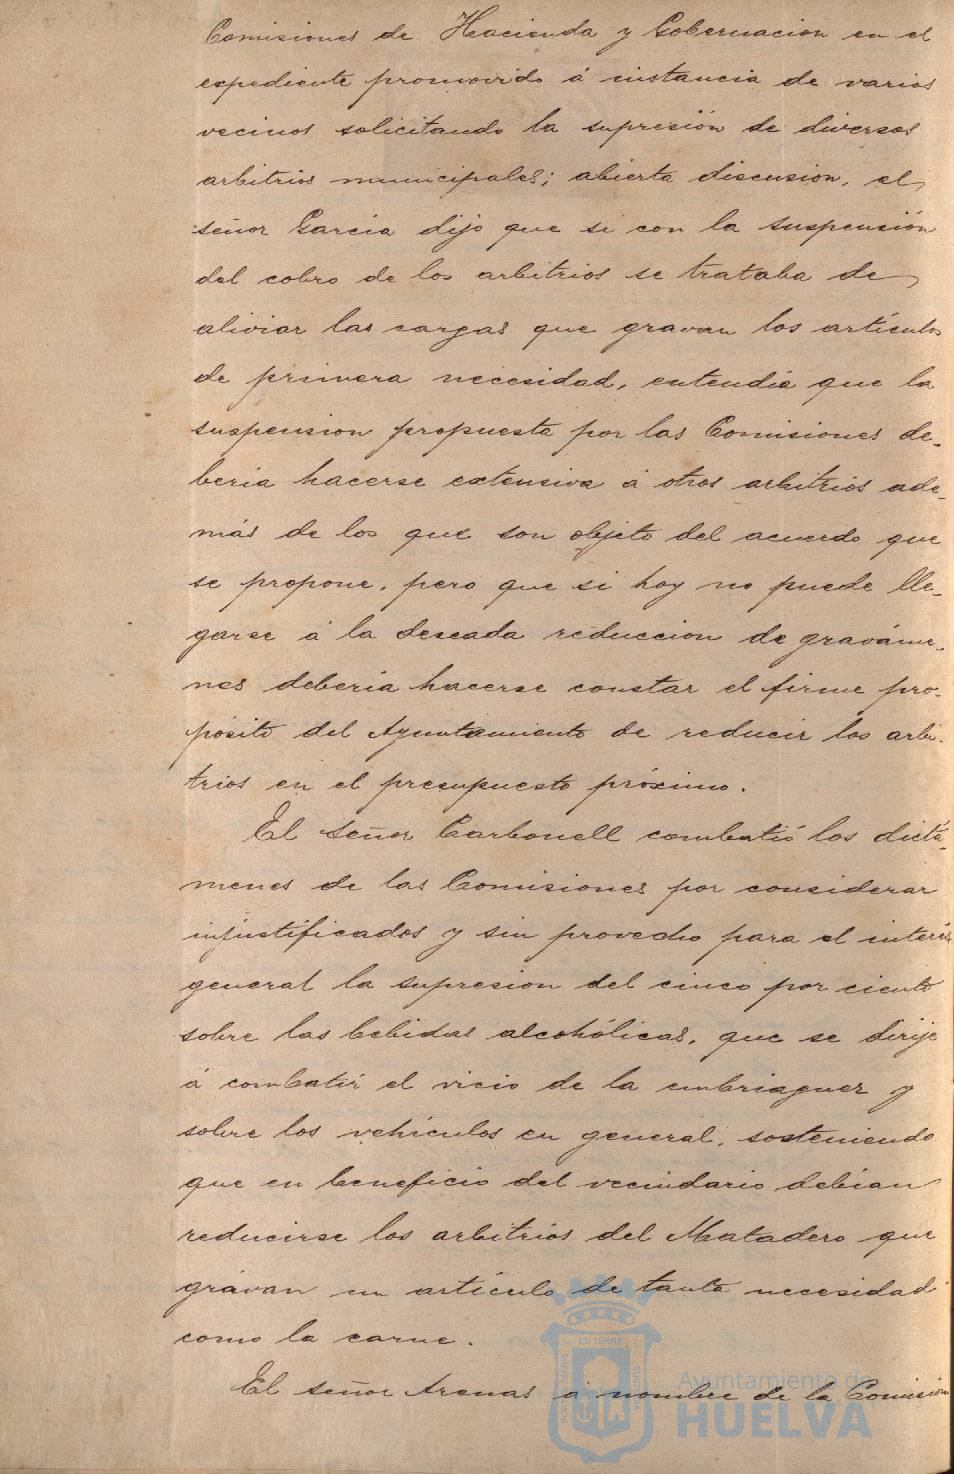 Comisiones de Hacienda y Gobernacion en el
expediente promovido á instancia de varios
vecinos solicitando la supresión de diversos
arbitrios municipales; abierta discusion, el
señor Garcia dijo que si con la suspensión
del cobro de los arbitrios se trataba de
aliviar las cargas que gravan los artículos
de primera necesidad, entendia que la
suspension propuesta por las Comisiones de-
beria hacerse extensiva á otros arbitrios ade-
más de los que son objeto del acuerdo que
se propone, pero que si hoy no puede lle-
garse á la deseada reduccion de graváme-
nes deberia hacerse constar el firme pro-
pósito del Ayuntamiento de reducir los arbi-
trios en el presupuesto próximo.
El señor Carbonell combatió los dictá-
menes de las Comisiones por considerar
injustificados y sin provecho para el interés
general la supresion del cinco por ciento
sobre las bebidas alcohólicas, que se dirije
á combatir el vicio de la embriaguez y
sobre los vehículos en general, sosteniendo
que en beneficio del vecindario debian
reducirse los arbitrios del Matadero que
gravan un artículo de tanta necesidad
como la carne.
El señor Arenas á nombre de la Comision
Ayuntamiento de
HUELVA